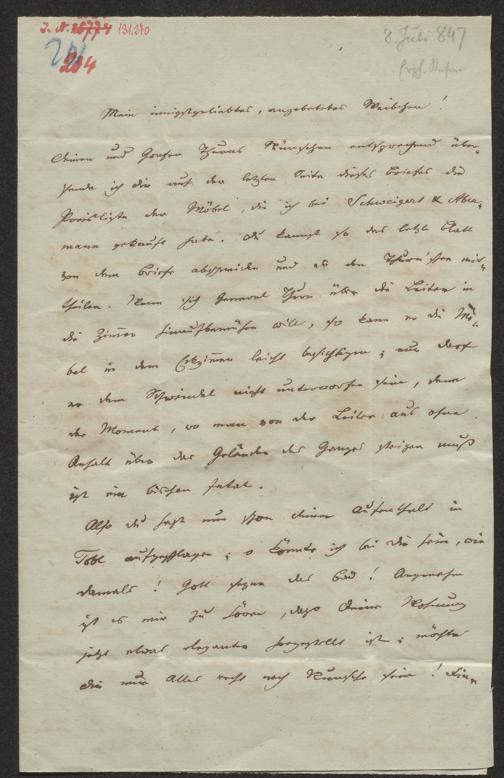 I. N. 131.270
204
8. Juli 847
Mein innigstgeliebtes, angebetetes Weibchen!
Deinen und Grafen Thurns Wünschen entsprechend über-
sende ich dir auf der letzten Seite dieses Briefes die
Preisliste der Möbel, die ich bei Schweigert &
mann gekauft habe. Du kannst so das letzte Blatt
von dem Briefe abschneiden und es den Thurn'schen mit-
theilen. Wenn sich General Thurn über die Leiter in
die Zimmer hinaufbemühen will, so kann er die Mö-
bel in dem Eckzimmer leicht besichtigen; nur darf
er dem Schwindel nicht unterworfen sein, denn
der Moment, wo man von der Leiter aus ohne
Anhalt über das Geländer des Ganges steigen muß
ist ein bischen fatal.
Also du hast nun schon deinen Aufenthalt in
Tobl aufgeschlagen; o könnte ich bei dir sein, wie
damals! Gott segne das Bad! Angenehm
ist es mir zu hören, daß deine Wohnung
jetzt etwas eleganter hergestellt ist; möchte
dir nur Alles recht nach Wunsche sein!